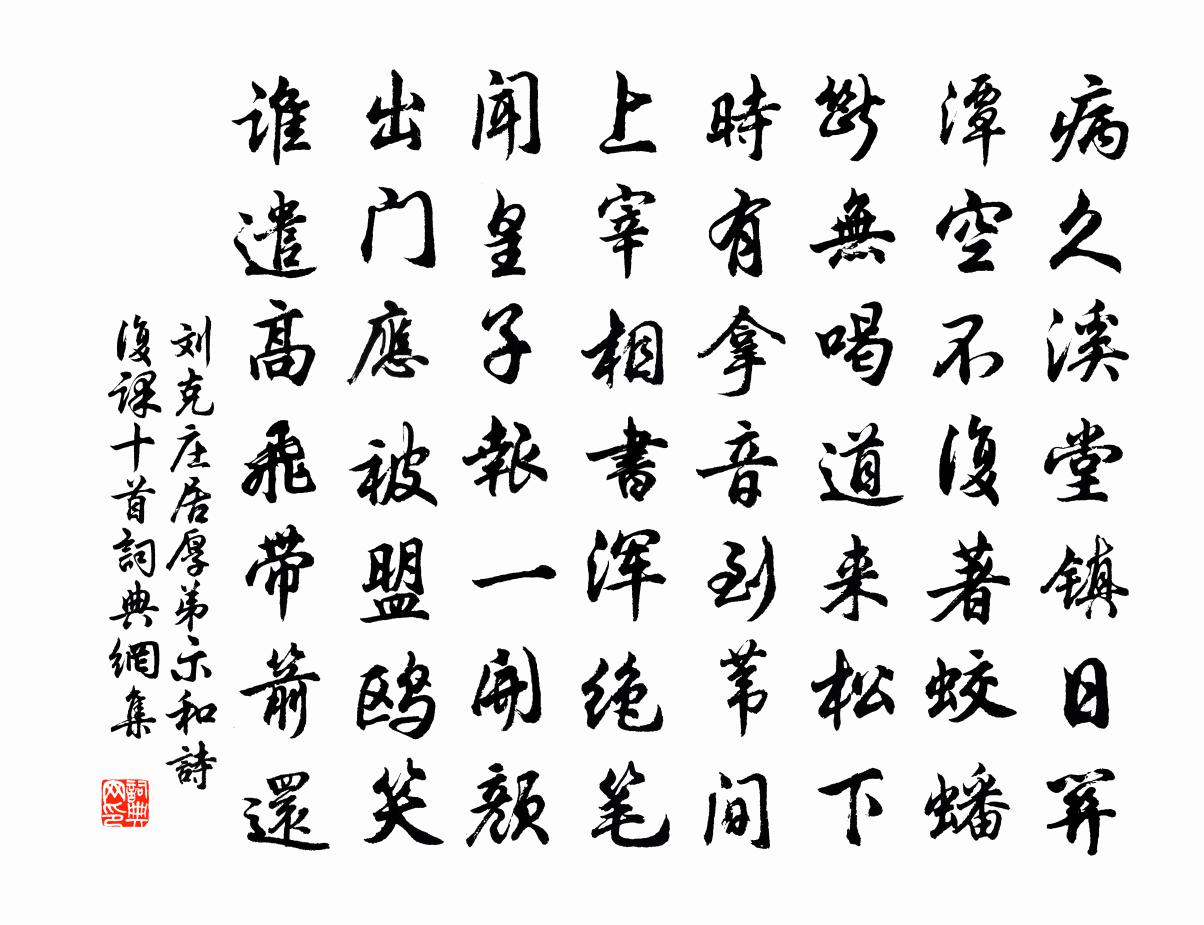 病久溪堂镇日関
潭空不復著蛟蟠
斷無喝道来松下
時有拿音到苇间
上宰相書浑绝笔
聞皇子報一開颜
出门應被盟鸥笑
谁遣高飛帶箭還
刘克庄居厚弟示和詩
復课十首詞典網集
詞典网印